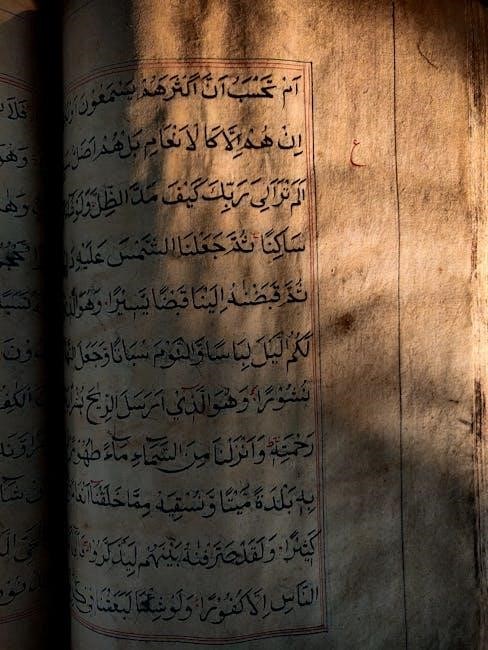 اَمْ تَحْسَبُ اَنَّ اَكْثَرَهُمْ يَسْمَعُونَ
اِنْ هُمْ اِلَّا كَالْاَنْعَامِ بَلْ هُمْ اَضَلُّ
ع
اَلَمْ تَرَ اِلٰى رَبِّكَ كَيْفَ مَدَّ الظِّلَّ وَلَوْ
سَاكِنًا ثُمَّ جَعَلْنَا الشَّمْسَ عَلَيْهِ
ثُمَّ قَبَضْنٰهُ اِلَيْنَا قَبْضًا يَسِيْرًا وَهُوَ
لَكُمُ الَّيْلَ لِبَاسًا وَّالنَّوْمَ سُبَاتًا وَّجَعَلَ
نُشُوْرًا وَهُوَ الَّذِيْ اَرْسَلَ الرِّيحَ
رَحْمَتِهِ وَاَنْزَلْنَا مِنَ السَّمَآءِ مَآءً طَهُوْرًا
بِهِ بَلْدَةً مَّيْتًا وَّنُسْقِيَهُ مِمَّا خَلَقْنَا
كَثِيْرًا وَلَقَدْ صَرَّفْنٰهُ بَيْنَهُمْ لِيَذَّكَّرُوْا
النَّاسِ اِلَّا كُفُوْرًا وَلَوْ شِئْنَا لَبَعَثْنَا فِي